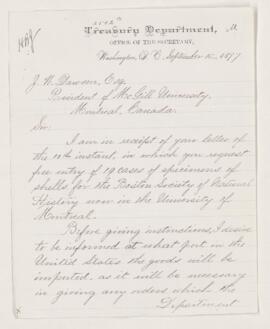 Treasury Department,
OFFICE OF THE SECRETARY,
Washington, D. C. September 1877
J. W. Dawson, Esq.
President of McGill University,
Montreal, Canada.
Sir:
I am in receipt of your letter of
the instant, in which you request
free entry of 19 cases of specimens of
shells for the Boston Society of Natural
History now in the University of
Montreal.
Before giving instructions, I desire
to be informed at what port in the
United States the goods will be
imported, as it will be necessary
in giving any orders which the
Department